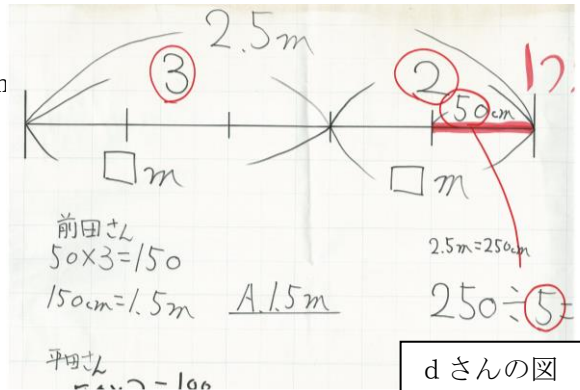 2.5m
3
2
50cm
□m
□m
前田さん
50×3=150
150cm=1.5m
A.1.5m
2.5m=250cm
250÷5=
平田さん
dさんの図